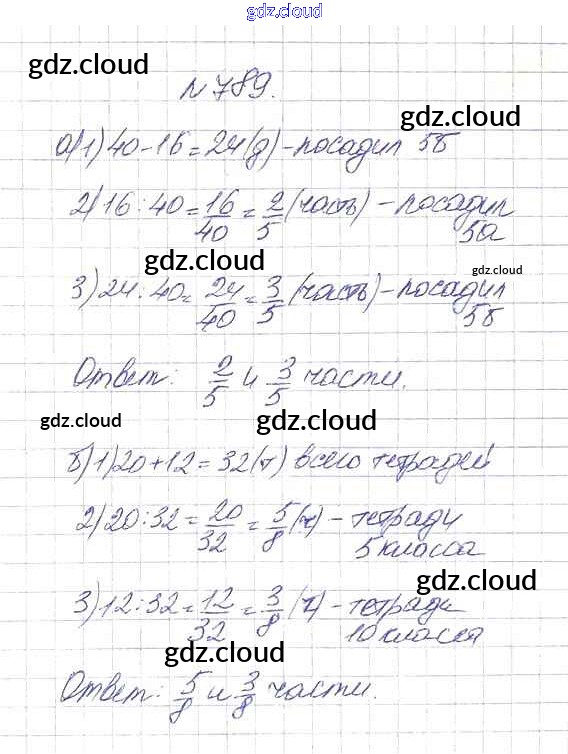 gdz.cloud
gdz.cloud
№789.
gdz.cloud
а) 1) 40-16=24(д)-посадил 5б
2) 16:40=16/40=2/5(часть)-посадил
5а
gdz.cloud
gdz.cloud
3) 24:40=24/40=3/5(часть)-посадил
5б
Ответ: 2/5 и 3/5 части.
gdz.cloud
gdz.cloud
б) 1) 20+12=32(т) всего тетрадей
2) 20:32=20/32=5/8(т)-тетради
5 класса
gdz.cloud
3) 12:32=12/32=3/8(т)-тетради
10 класса
gdz.cloud
Ответ: 5/8 и 3/8 части.